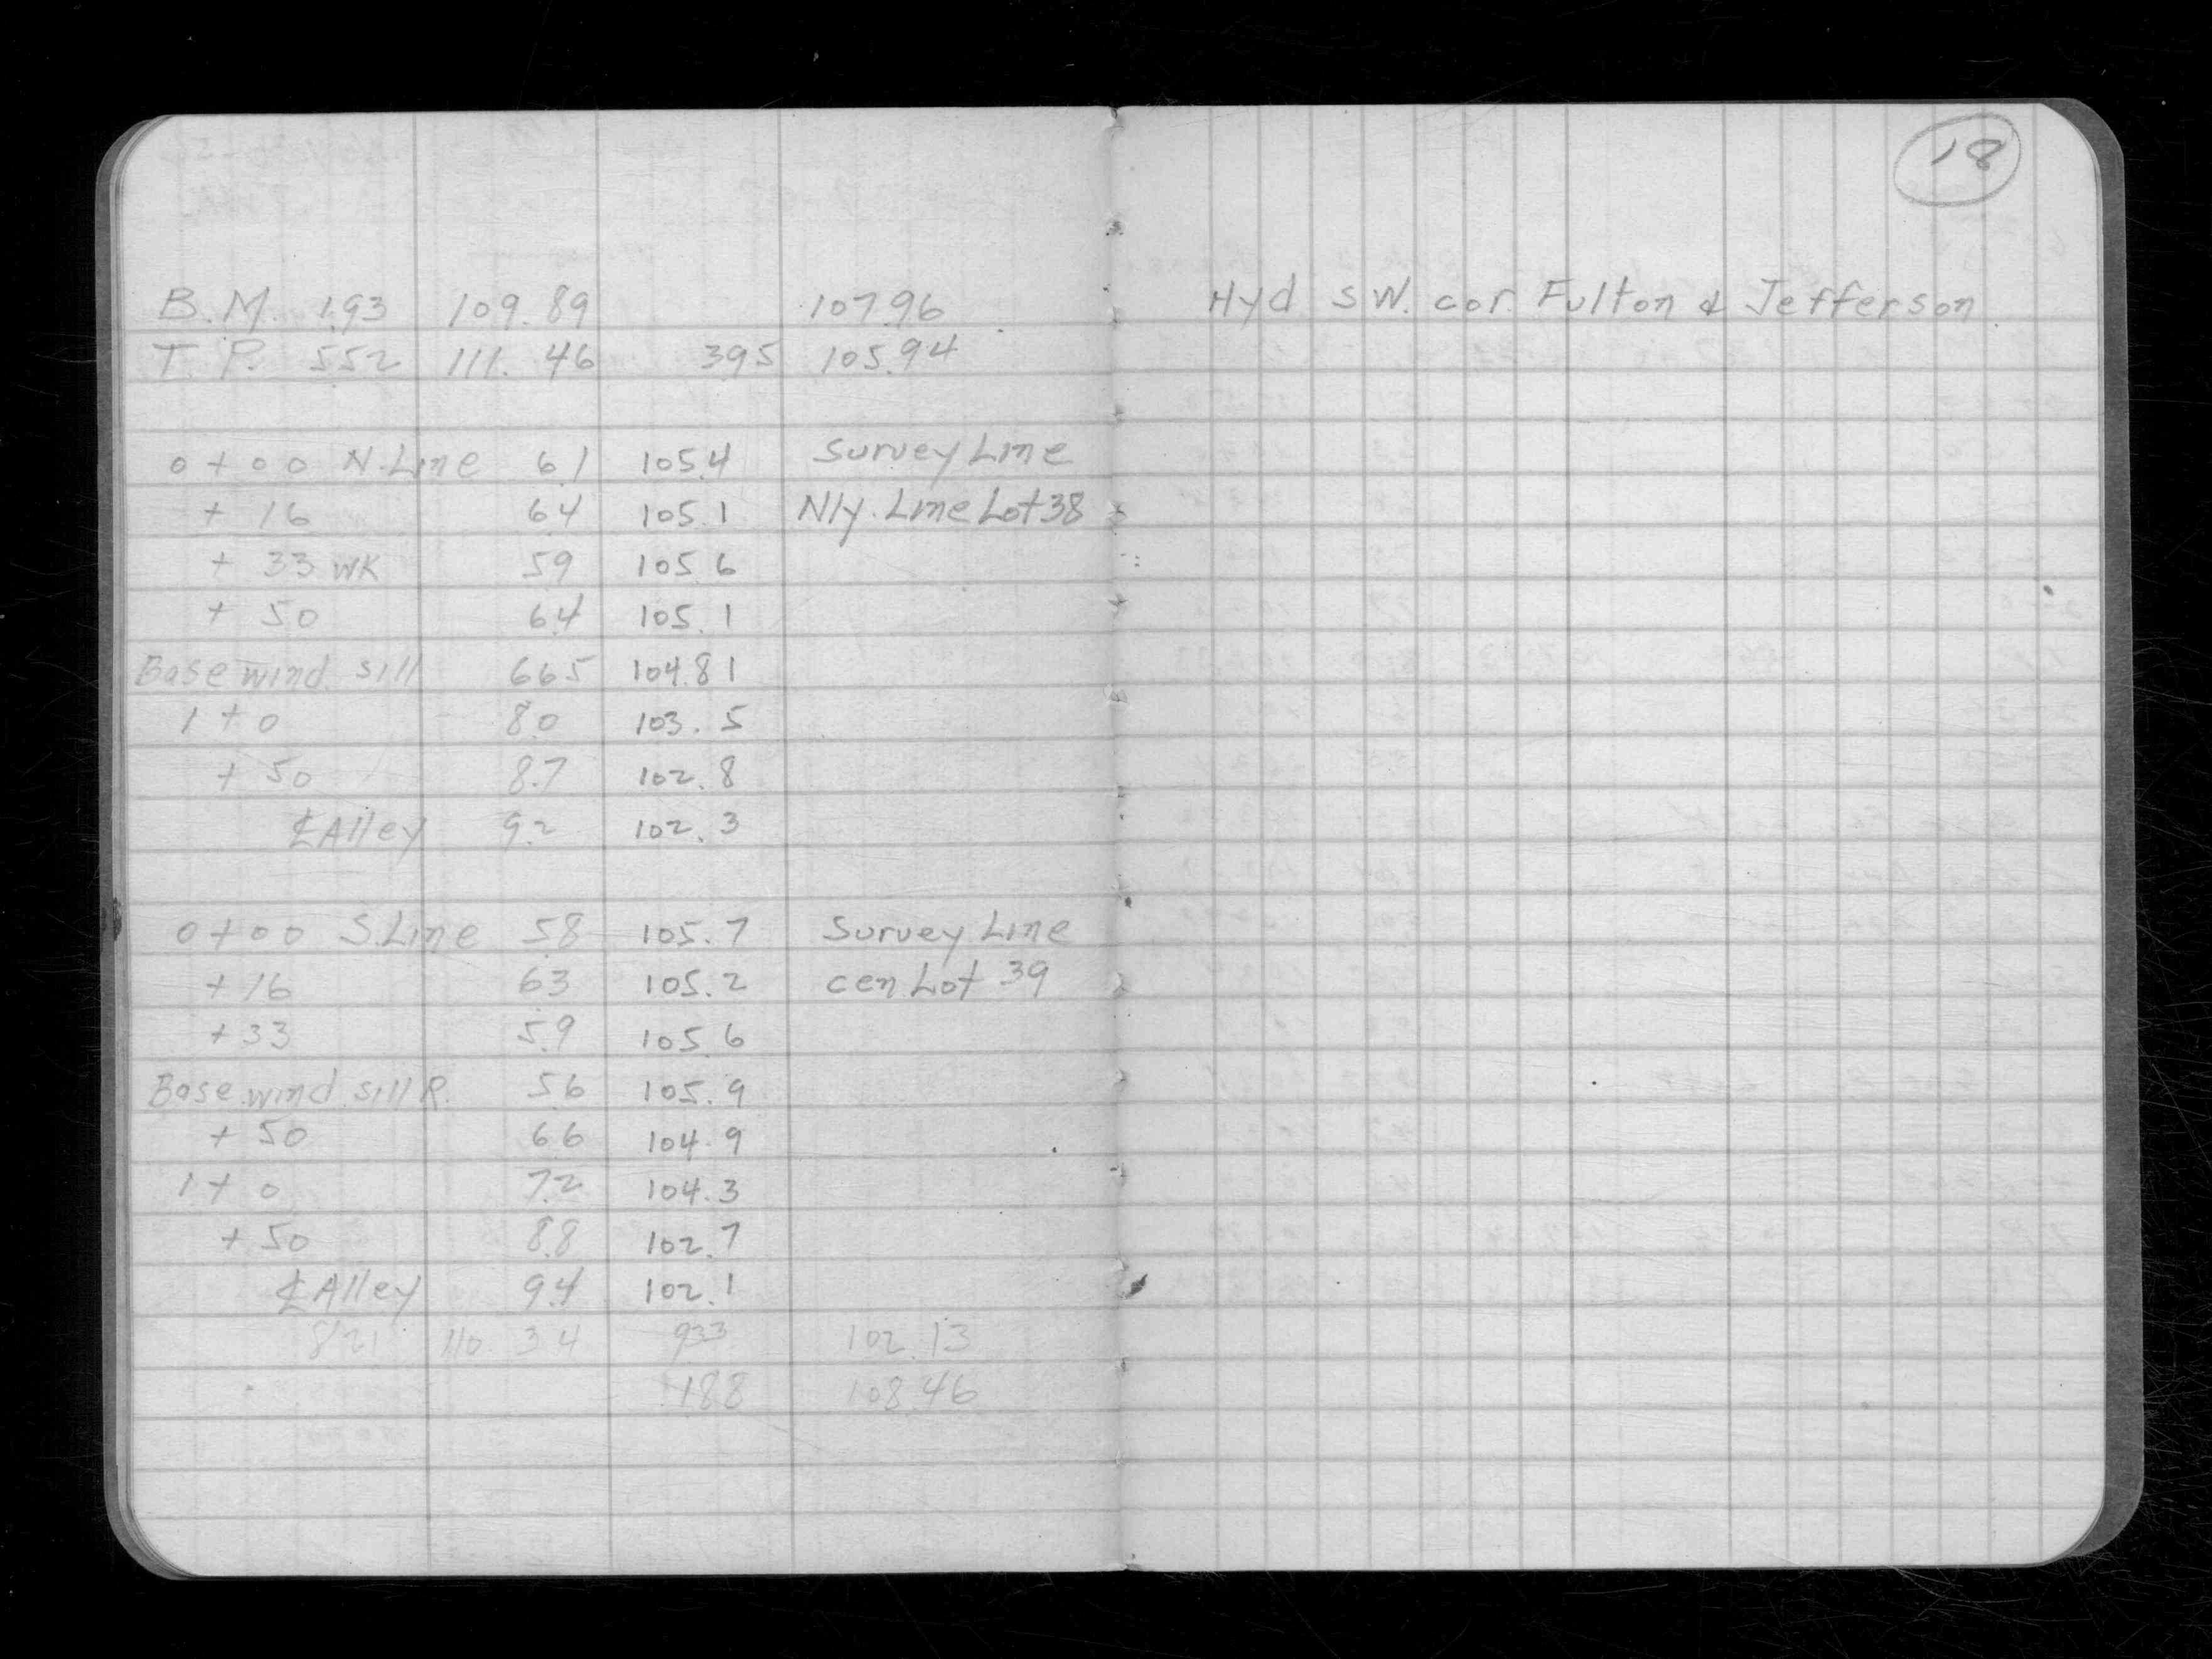 18
B.M. 1.93 109.89 107.96 Hyd SW. cor. Fulton & Jefferson
T.P. 5.52 111.46 3.95 105.94
0+00 N.Line 6.1 105.4 Survey Line
+16 6.4 105.1 Nly. Line Lot 38
+33 WK 5.9 105.6
+50 6.4 105.1
Base wind. sill 6.65 104.81
1+0 8.0 103.5
+50 8.7 102.8
℄ Alley 9.2 102.3
0+00 S.Line 5.8 105.7 Survey Line
+16 6.3 105.2 cen Lot 39
+33 5.9 105.6
Base wind. sill R. 5.6 105.9
+50 6.6 104.9
1+0 7.2 104.3
+50 8.8 102.7
℄ Alley 9.4 102.1
8.21 110.34 9.33 102.13
1.88 108.46